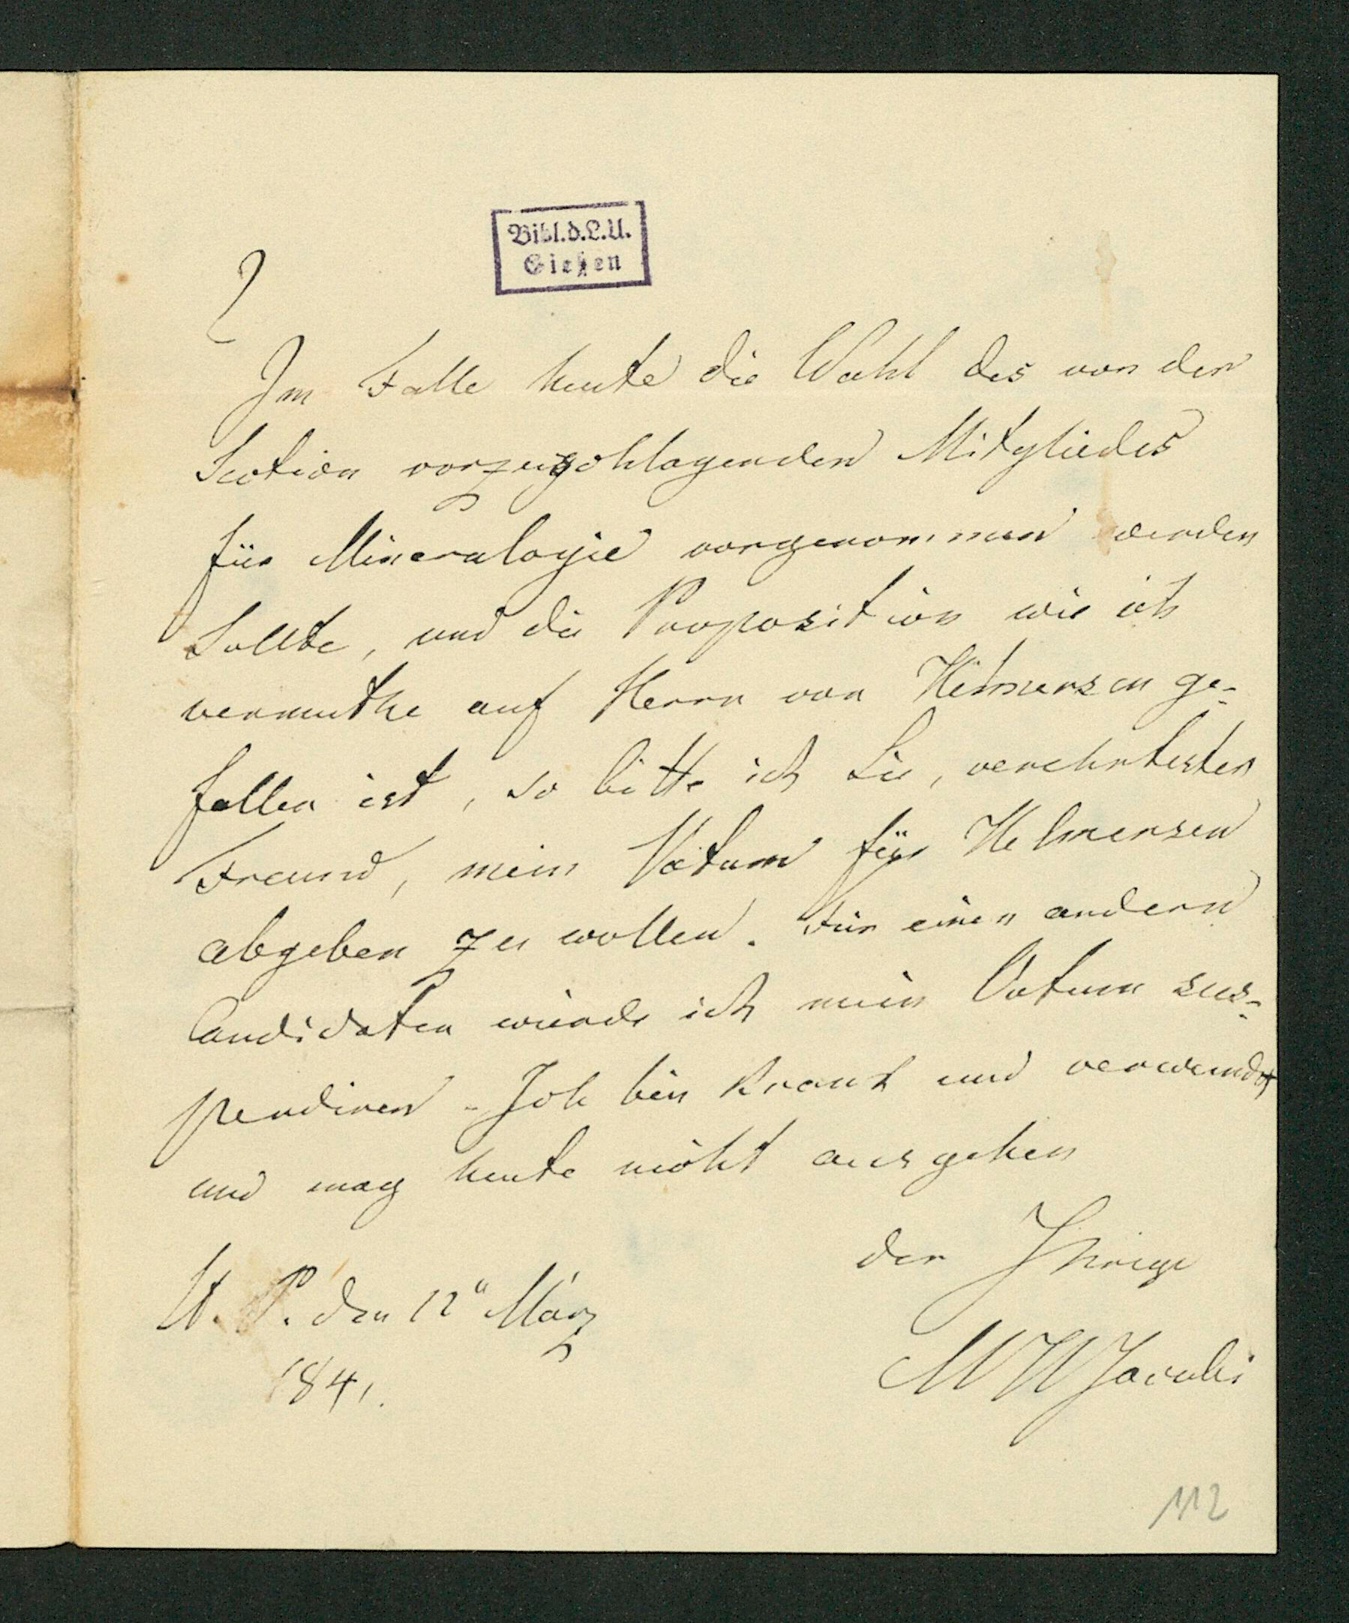 Bibl.d.L.U.
Gießen
Im Falle heute die Wahl des von der
Section vorzuschlagenden Mitgliedes
für Mineralogie vorgenommen werden
sollte, und die Proposition wie ich
vermuthe auf Herrn von Helmersen ge-
fallen ist, so bitte ich Sie, verehrtester
Freund, mein Votum für Helmersen
abgeben zu wollen. Für einen andern
Candidaten würde ich mein Votum sus-
pendiren. Ich bin krank und verwundet
und mag heute nicht ausgehen
der Ihrige
St. P. den 12" März
1841.
MHJacobi
112